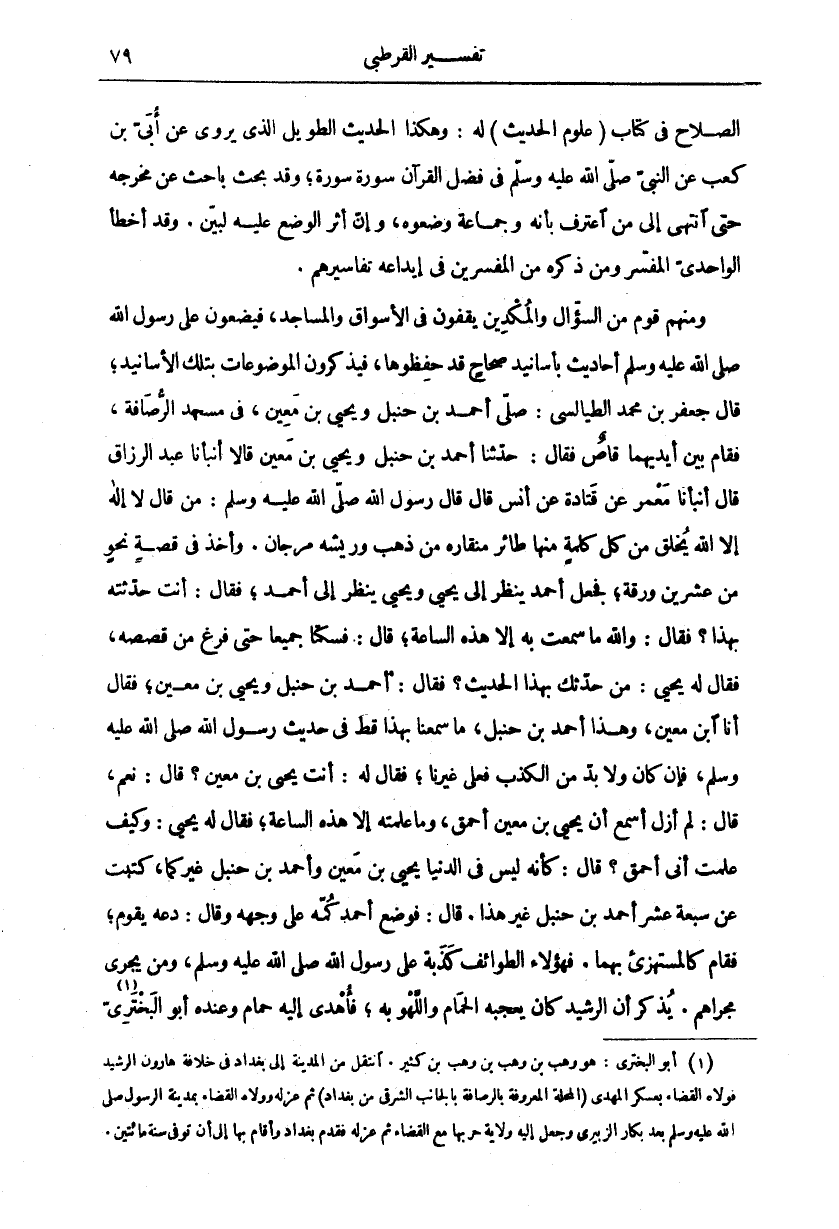 تفســـير القرطبى ٧٩
الصــلاح فى كتاب (علوم الحديث) له : وهكذا الحديث الطويل الذى يروى عن أُبَىّ بن
كعب عن النبىّ صلّى الله عليه وسلّم فى فضل القرآن سورة سورة؛ وقد بحث باحث عن مخرجه
حتى آنتهى إلى من آعترف بأنه وجمـاعة وضعوه، وإنّ أثر الوضع عليـه لبيّن . وقد أخطأ
الواحدىّ المفسّر ومن ذكره من المفسرين فى إيداعه تفاسيرهم .
ومنهم قوم من السؤّال والمُكْدِين يقفون فى الأسواق والمساجد، فيضعون على رسول الله
صلى الله عليه وسلم أحاديث بأسانيد صحاحٍ قد حفِظوها، فيذكرون الموضوعات بتلك الأسانيد؛
قال جعفر بن محمد الطيالسى : صلّى أحمـد بن حنبل ويحيى بن مَعِين ، فى مسجد الرُّصَافة ،
فقام بين أيديهما قاصٌّ فقال : حدّثنا أحمد بن حنبل ويحيى بن مَعين قالا أنبأنا عبد الرزاق
قال أنبأنا مَعْمر عن قَتادة عن أنس قال قال رسول الله صلّى الله عليـه وسلم : من قال لا إلٰه
إلا الله يُخلق من كل كلمةٍ منها طائر منقاره من ذهب وريشه مرجان . وأخذ فى قصـةٍ نحوٍ
من عشرين ورقة؛ فجعل أحمد ينظر إلى يحيى ويحيى ينظر إلى أحمـد ؛ فقال : أنت حدّثته
بهذا ؟ فقال : والله ما سمعت به إلا هذه الساعة؛ قال : فسكتا جميعا حتى فرغ من قصصه،
فقال له يحيى : من حدّثك بهذا الحديث؟ فقال : أحمـد بن حنبل ويحيى بن معـين؛ فقال
أنا آبن معين، وهـذا أحمد بن حنبل، ما سمعنا بهذا قطّ فى حديث رسـول الله صلى الله عليه
وسلم، فإن كان ولا بدّ من الكذب فعلى غيرنا ؛ فقال له : أنت يحيى بن معين ؟ قال : نعم،
قال : لم أزل أسمع أن يحيى بن معين أحمق، وما علمته إلا هذه الساعة؛ فقال له يحيى : وكيف
علمت أنى أحمق ؟ قال : كأنه ليس فى الدنيا يحيى بن مَعين وأحمد بن حنبل غيركما، كتبت
عن سبعة عشر أحمد بن حنبل غير هذا . قال : فوضع أحمد كُمَّه على وجهه وقال : دعه يقوم؛
فقام كالمستهزئ بهما . فهؤلاء الطوائف كَذَبة على رسول الله صلى الله عليه وسلم، ومن يجرى
مجراهم . يُذكر أن الرشيد كان يعجبه الحَمَام واللَّهو به ؛ فأُهْدى إليه حمام وعنده أبو البَخْتَرىّ (١)
(١) أبو البخترى : هو وهب بن وهب بن وهب بن كثير . آنتقل من المدينة إلى بغداد فى خلافة هارون الرشيد
فولاه القضاء بعسكر المهدى (المحلة المعروفة بالرصافة بالجانب الشرقى من بغداد) ثم عزله وولاه القضاء بمدينة الرسول صلى
الله عليه وسلم بعد بكار الزبيرى وجعل إليه ولاية حربها مع القضاء ثم عزله فقدم بغداد وأقام بها إلى أن توفى سنة مائتين .